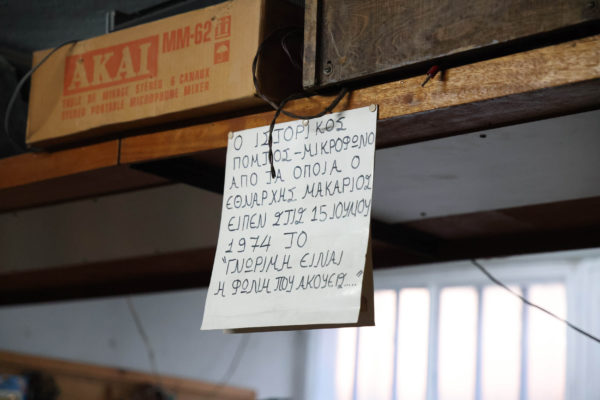 AKAI MM-62
TABLE DE MIXAGE STEREO 6 CANAUX
STEREO PORTABLE MICROPHONE MIXER
"Ο ΙΣΤΟΡΙΚΟΣ
ΠΟΜΠΟΣ-ΜΙΚΡΟΦΩΝΟ
ΑΠΟ ΤΑ ΟΠΟΙΑ Ο
ΕΘΝΑΡΧΗΣ ΜΑΚΑΡΙΟΣ
ΕΙΠΕΝ ΣΤΙΣ 15 ΙΟΥΛΙΟΥ
1974 ΤΟ
"ΓΝΩΡΙΜΗ ΕΙΝΑΙ
Η ΦΩΝΗ ΠΟΥ ΑΚΟΥΕΙΣ....."